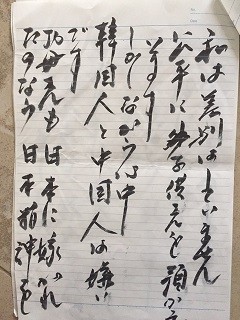 私は差別はしていません
公平にお子供さんを預かって
います
しかしながら心中
韓国人と中国人は嫌い
です
お母さんも日本に嫁がれ
たのなら日本精神を